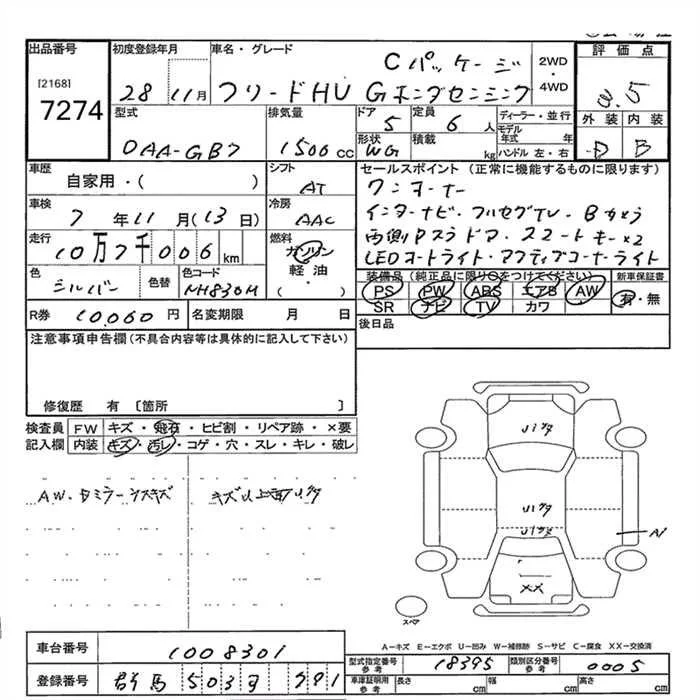 出品番号
[2168]
7274
初度登録年月
28 11月
車名・グレード
Cパッケージ
フリードHV Gホンダセンシング
2WD
・
4WD
評価点
3.5
外装 内装
D B
型式
DAA-GB7
排気量
1500cc
ドア
5
定員
6人
形状
WG
積載
kg
ディーラー・並行
モデル
年式 年
ハンドル 左・右
車歴
自家用・( )
シフト
AT
車検
7年11月(13日)
冷房
AAC
走行
10万7千006km
燃料
ガソリン
軽油
・( )
色
シルバー
色替
色コード
NH830M
R券
10,060円
名変期限 月 日
セールスポイント(正常に機能するものに限ります)
ワンオーナー
インターナビ・フルセグTV・Bカメラ
両側Pスラドア・スマートキー×2
LEDオートライト・アクティブコーナーライト
装備品(純正品に限り○をつけてください)
新車保証書
PS PW ABS エアB AW
有・無
SR ナビ TV カワ
後日品
注意事項申告欄(不具合内容等は具体的に記入して下さい)
修復歴 有 〔箇所 〕
検査員
記入欄
FW キズ・飛石・ヒビ割・リペア跡・×要
内装 キズ・汚レ・コゲ・穴・スレ・キレ・破レ
キズ以上多数
XX
スペア
A-キズ E-エクボ U-凹み W-補修跡 S-サビ C-腐食 XX-交換済
車台番号
1008301
登録番号
群馬503
型式指定番号
参考
18395
類別区分番号
参考
0005
車庫証明用
参考
長さ cm
幅 cm
高さ cm